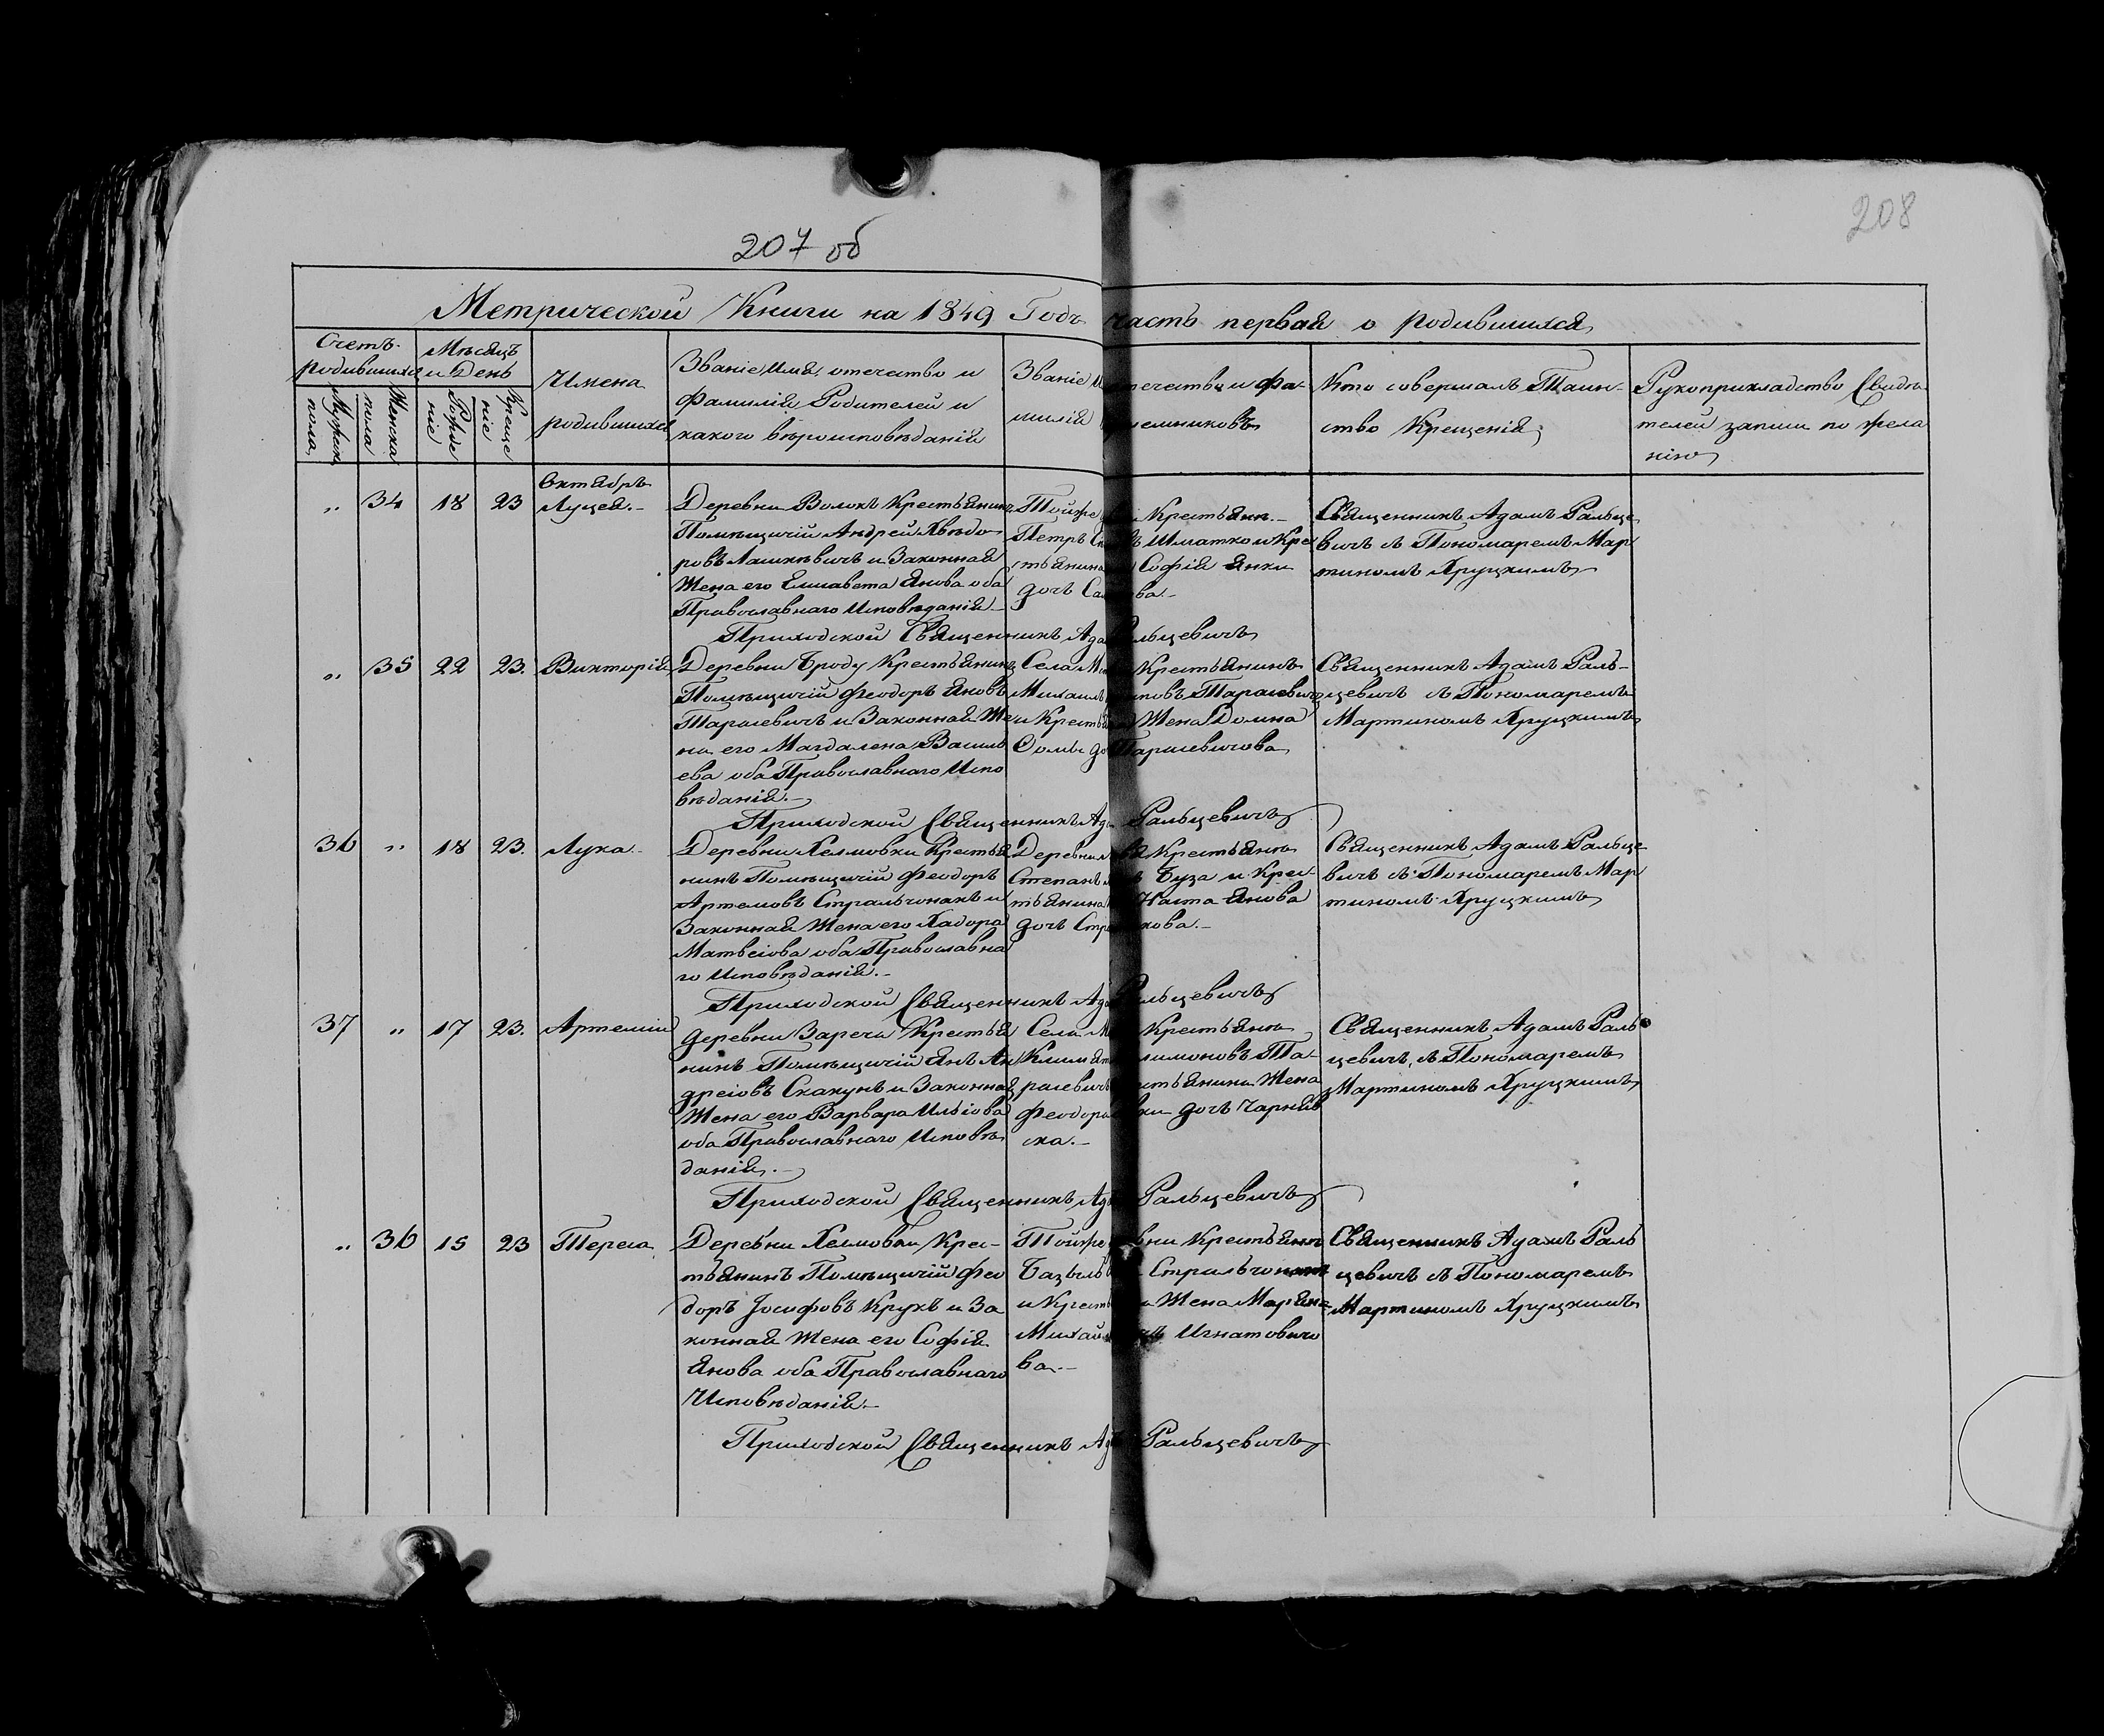 208
207 об
Метрической Книги на 1849 Годъ часть первая о родившихся
Счетъ родившихся
Мѣсяцъ и День
Мужеска пола
Женска пола
Рожденіе
Крещеніе
Имена
родившихся
Званіе, имя, отечество и
фамилія Родителей и
какого вѣроисповѣданія
Званіе отечество и фа-
милія
Кто совершалъ Таин-
ство Крещенія
Рукоприкладство Свидѣ-
телей записи по жела
нію
Октябрь
„ 34 18 23 Луцея.-
Деревни Волокъ Крестьянинъ
Помѣщичій Андрей
Лашкѣвичъ и Законная
Жена его Елисавета Янова оба
Православнаго Исповѣданія.-
Тойже Крестьян.-
Петръ Шматко и Кре
стьянина Софія Янки
дочь
Священникъ АдамъРальце
вичъ съ Пономаремъ Мар
тиномъ Хруцкимъ
Приходской Священникъ Адамъ Ральцевичъ
„ 35 22 23. Викторія
Деревни Броду Крестьянинъ
Помѣщичій Феодоръ Яновъ
Тарасевичъ и Законная Же
на его Магдалена Василь
ева оба Православнаго Испо
вѣданія.-
Села Крестьянинъ
Михаилъ Тарасевичъ
и Крестьян Жена Домна
Сомы Тарасевичова
Священникъ Адамъ Раль-
цевичъ съ Пономаремъ
Мартиномъ Хруцкимъ
Приходской Священникъ Адамъ Ральцевичъ
36 „ 18 23. Лука.-
Деревни Хелмовки Крестья
нинъ Помѣщичій Феодоръ
Артемовъ Стральчонакъ и
Законная Жена его Хадора
Матвеіова оба Православна
го Исповѣданія.-
Деревни Крестьян
Степанъ Буза и Крес-
тьянина Наста Янова
дочь
Священникъ Адамъ Ральце
вичъ съ Пономаремъ Мар
тиномъ Хруцкимъ
Приходской Священникъ Адамъ Ральцевичъ
37 „ 17 23. Артемій
деревни Заречи Крестья
нинъ Помѣщичій Янъ Ан
дреіовъ Скакунъ и Законная
Жена его Варвара Ильіова
оба Православнаго Исповѣ
данія.-
Села Крестьян
Климат Та-
расевичъ Крестьянина Жена
Феодора дочь Чарняв
ска.-
Священникъ Адамъ Раль
цевичъ, съ Пономаремъ
Мартиномъ Хруцкимъ
Приходской Священникъ Адамъ Ральцевичъ
„ 36 15 23 Тереса
Деревни Хелмовки Крес-
тьянинъ Помѣщичій Фео
доръ Іосифовъ Крукъ и За
конная Жена его Софія
Янова оба Православнаго
Исповѣданія.-
Тойже Деревни Крестьян
Базыль Стральчонакъ
и Крестьян Жена Маряна
Михай Игнатович
ва.-
Священникъ Адамъ Раль
цевичъ съ Пономаремъ
Мартиномъ Хруцкимъ
Приходской Священникъ Адамъ Ральцевичъ